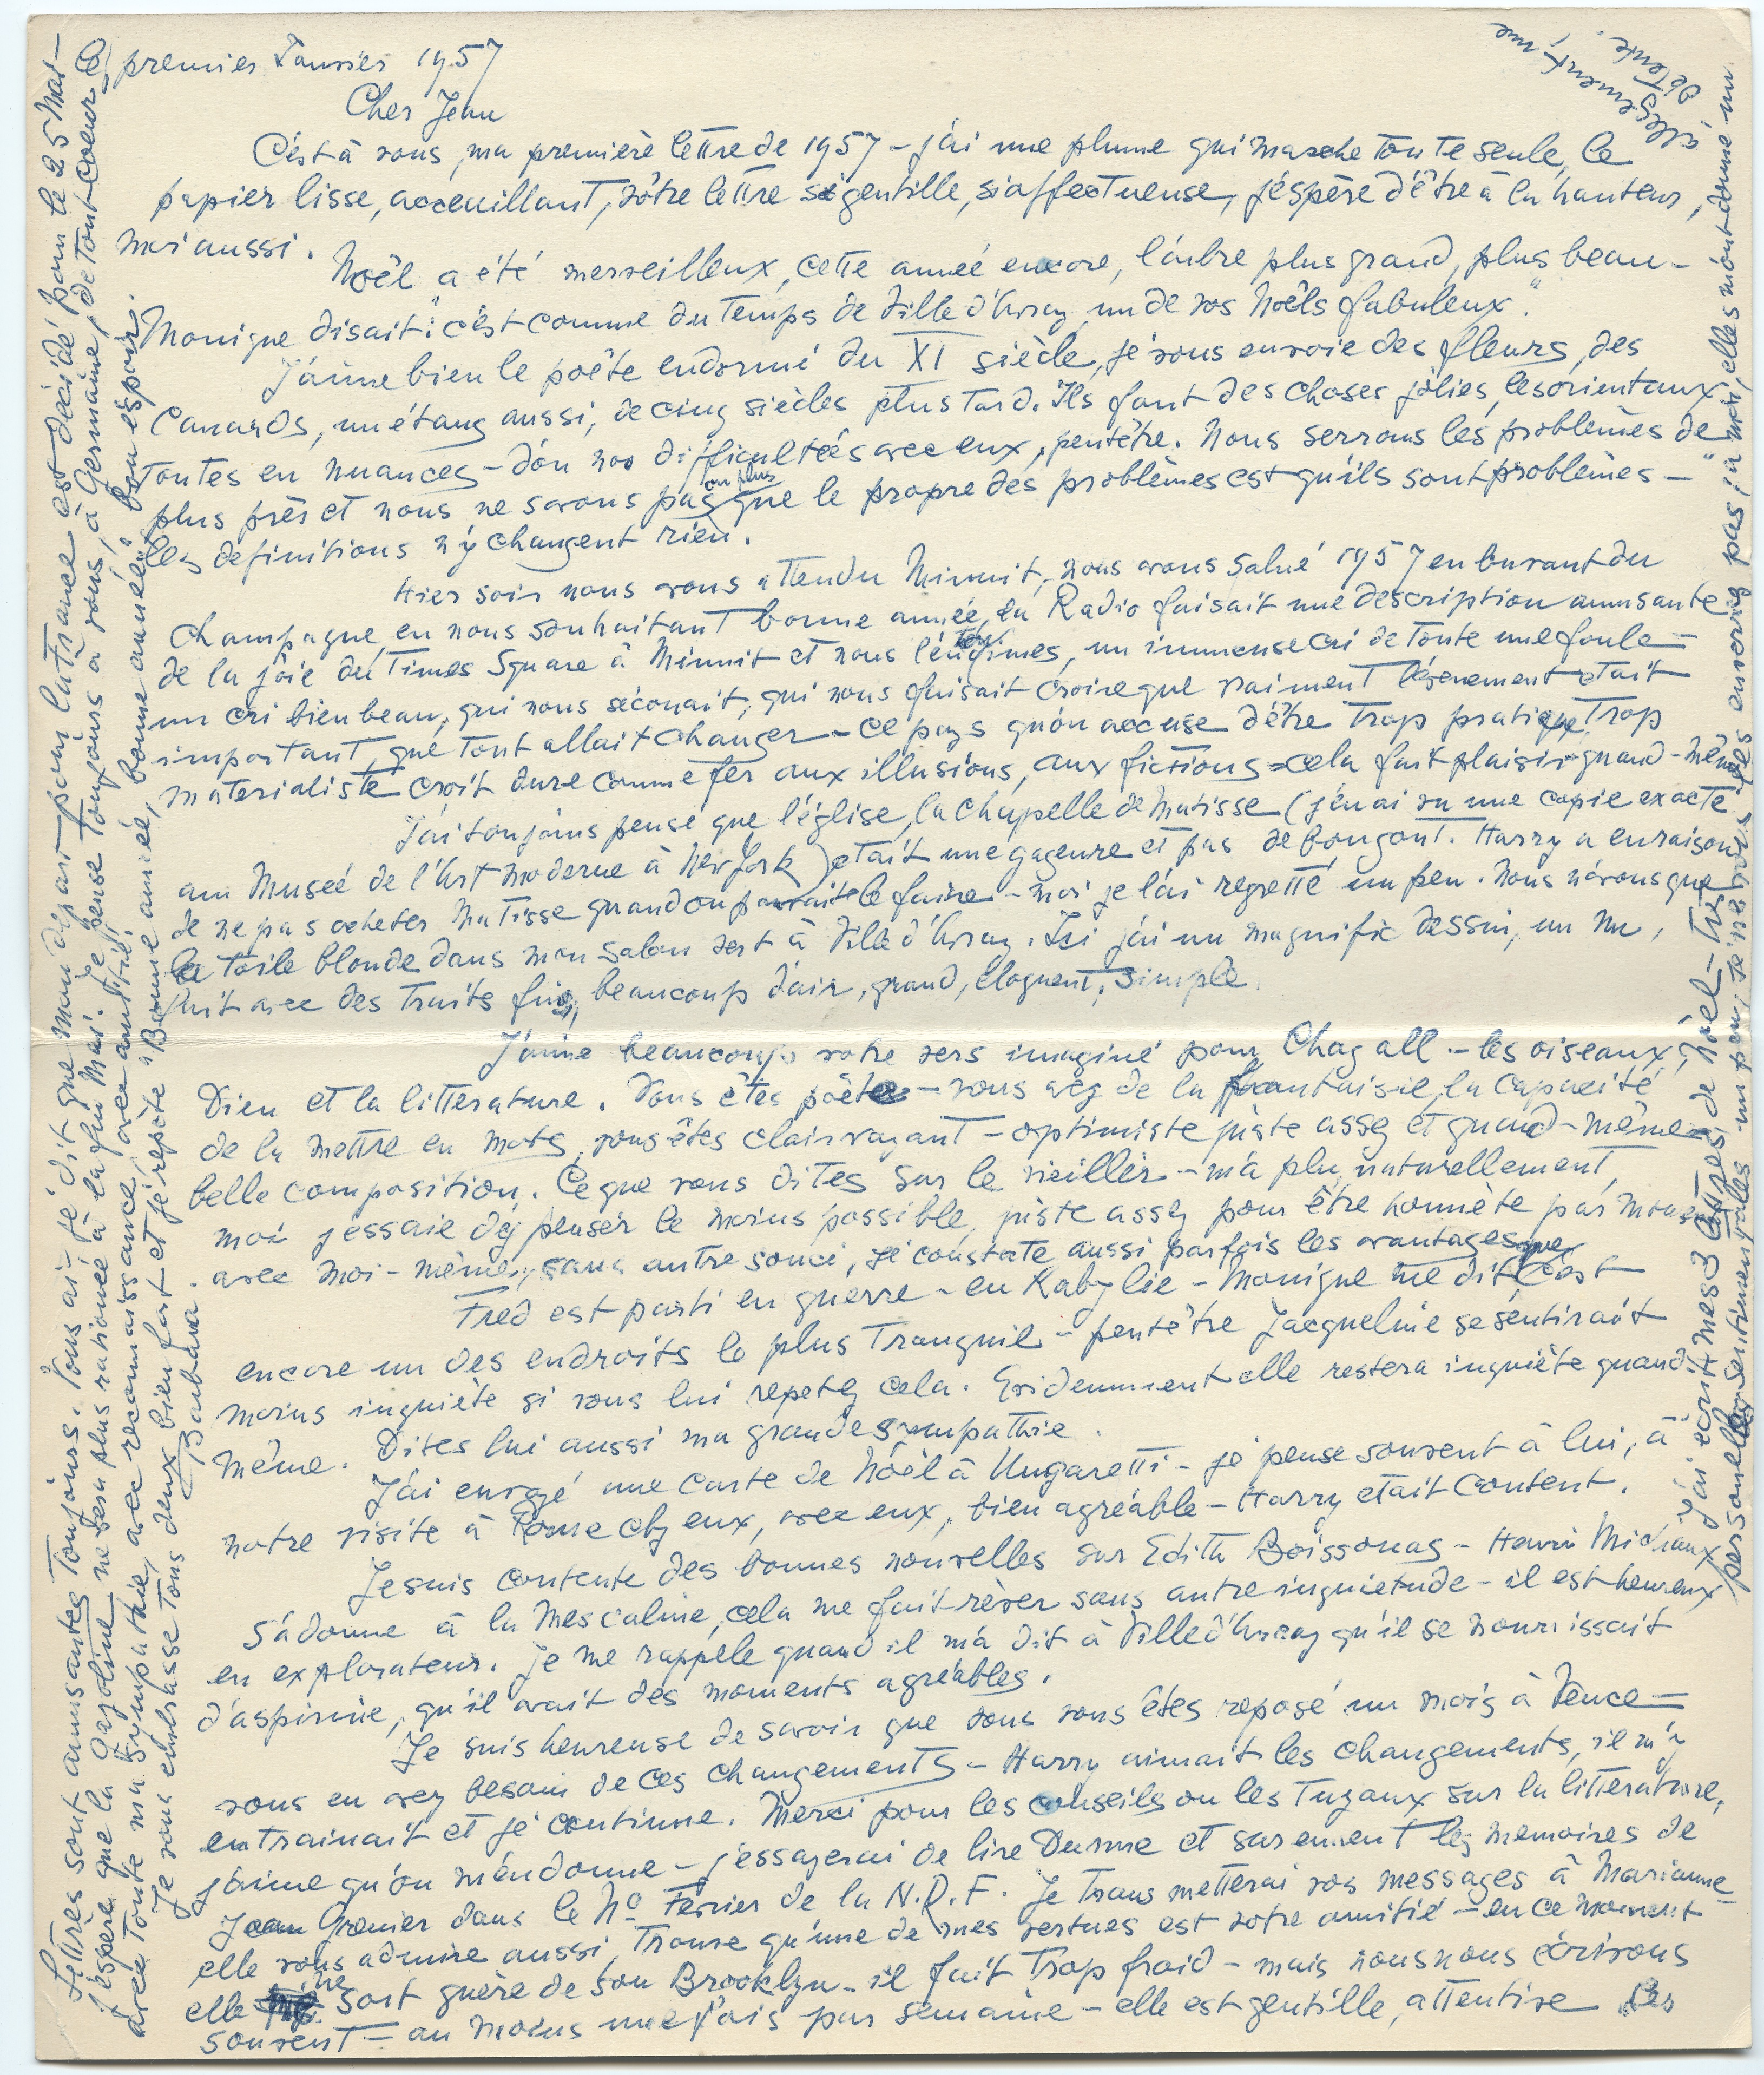 premier Janvier 1957
Cher Jean
C'est à vous, ma première lettre de 1957 – j'ai une plume qui marche toute seule, le
papier lisse, acceuillant, vôtre lettre si gentille, si affectueuse, j'éspère d'être à la hauteur,
moi aussi.
Noël a été merveilleux, cette année encore, l'arbre plus grand, plus beau –
Monique disait: "c'est comme du temps de Ville d'Avray, un de vos Noëls fabuleux".
J'aime bien le poête endormi du XI siècle, je vous envoie des fleurs, des
Canards, un étang aussi, de cinq siècles plus tard. Ils font des choses jolies, les orientaux,
toutes en nuances – d'ou nos difficultées avec eux, peutêtre. Nous serrons les problèmes de
plus près et nous ne savons pas ou plus que le propre des problèmes est qu'ils sont problèmes –
les definitions n'y changent rien.
Hier soir nous avons attendu Minuit, nous avons salué 1957 en buvant du
champagne, en nous souhaitant bonne année, la Radio faisait une description amusante
de la joie du Times Square à Minuit et nous l'entendimes, un immense cri de toute une foule –
un cri bien beau, qui nous sécouait, qui nous faisait croire que vraiment l'évenement etait
important, que tout allait changer – ce pays qu'on accuse d'être trop pratique, trop
materialiste croit dure comme fer aux illusions, aux fictions = cela fait plaisir quand-même
J'ai toujours pensé que l'église, la chapelle de Matisse (j'en ai vu une copie exacte
au Museé de l'Art moderne à New York) etait une gageure et pas de bon gout. Harry a eu raison
de ne pas acheter Matisse quand on pouvait le faire – moi je l'ai regretté un peu. Nous n'avons que
la toile blonde dans mon salon vert à Ville d'Avray. Ici j'ai un magnific dessin, un nu,
fait avec des traits fins, beaucoup d'air, grand, éloquent, simple.
J'aime beaucoup votre vers imaginé pour Chagall – les oiseaux,
Dieu et la litterature. Vous êtes poête – vous avez de la fantaisie, la capacité
de la mettre en mots, vous êtes clairvoyant – optimiste juste assez et quand-même
belle composition. Ce que vous dites sur le vieillir – m'a plu, naturellement,
moi j'essaie d'y penser le moins possible, juste assez pour être honnète par moments
avec moi-même, sans autre souci, je constate aussi parfois les avantages
Fred est parti en guerre – en Kabylie – Monique me dit que c'est
encore un des endroits le plus tranquil – peutêtre Jacqueline se sentirait
moins inquiète si vous lui repetez cela. Evidemment elle restera inquiète quand
même. Dites lui aussi ma grande sympathie.
J'ai envoyé une carte de Nöel à Ungaretti – je pense souvent à lui, à
notre visite à Rome chez eux, avec eux, bien agréable – Harry etait content.
Je suis contente des bonnes nouvelles sur Edith Boissonas – Henri Michaux
s'adonne à la Mescaline, cela me fait rêver sans autre inquietude – il est heureux
en explorateur. Je me rappelle quand il m'a dit à Ville d'Avray qu'il se nourrissait
d'aspirine, qu'il avait des moments agréables.
Je suis heureuse de savoir que vous vous êtes reposé un mois à Vence –
vous en avez besoin de ces changements – Harry aimait les changements, il m'y
entrainait et je continue. Merci pour les conseils ou les tuyaux sur la litterature,
j'aime qu'on m'en donne – j'essayerai de lire Dasme et surement les memoires de
Jean Grenier dans le No Fevrier de la N.R.F. Je transmetterai vos messages à Marianne –
elle vous admire aussi, trouve qu'une de mes vertues est votre amitié – en ce moment
elle ne sort guère de son Brooklyn – il fait trop froid – mais nous nous écrivons
souvent – au moins une fois par semaine – elle est gentille, attentive ses
lettres sont amusantes toujours. Vous ai-je dit que mon départ pour la France est décidé pour le 25 Mai –
j'éspère que la gazoline ne sera plus rationeé à la fin Mai. Je pense toujours à vous, à Germaine, de tout coeur
avec toute ma sympathie, avec reconnaissance, avec amitié,
Je vous embrasse tous deux bien fort et je répète "Bonne année, bonne année," bon éspoir.
Barbara.
J'ai ecrit mes 3 lettres de Nöel – tres
personelles sentimentales un peu, je ne vous les enverrai pas; à moi, elles m'ont donné un
allègement, une
détente.